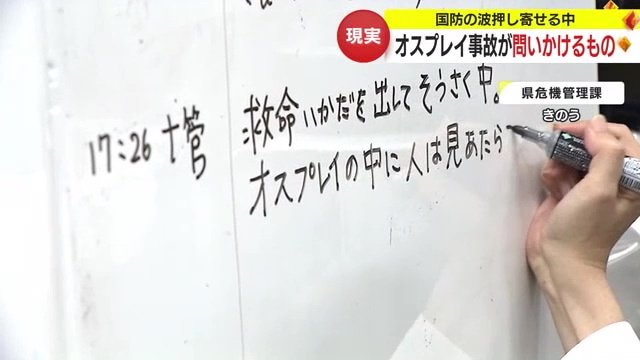 国防の波押し寄せる中
現実
オスプレイ事故が問いかけるもの
県危機管理課
きのう
17:26 十管 救命いかだを出してそうさく中。
オスプレイの中に人は見あたら